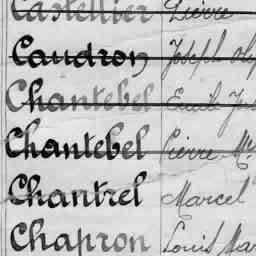 Castellier Pierre
Caudron Joseph
Chantebel Emile
Chantebel Pierre
Chantrel Marcel
Chapron Louis